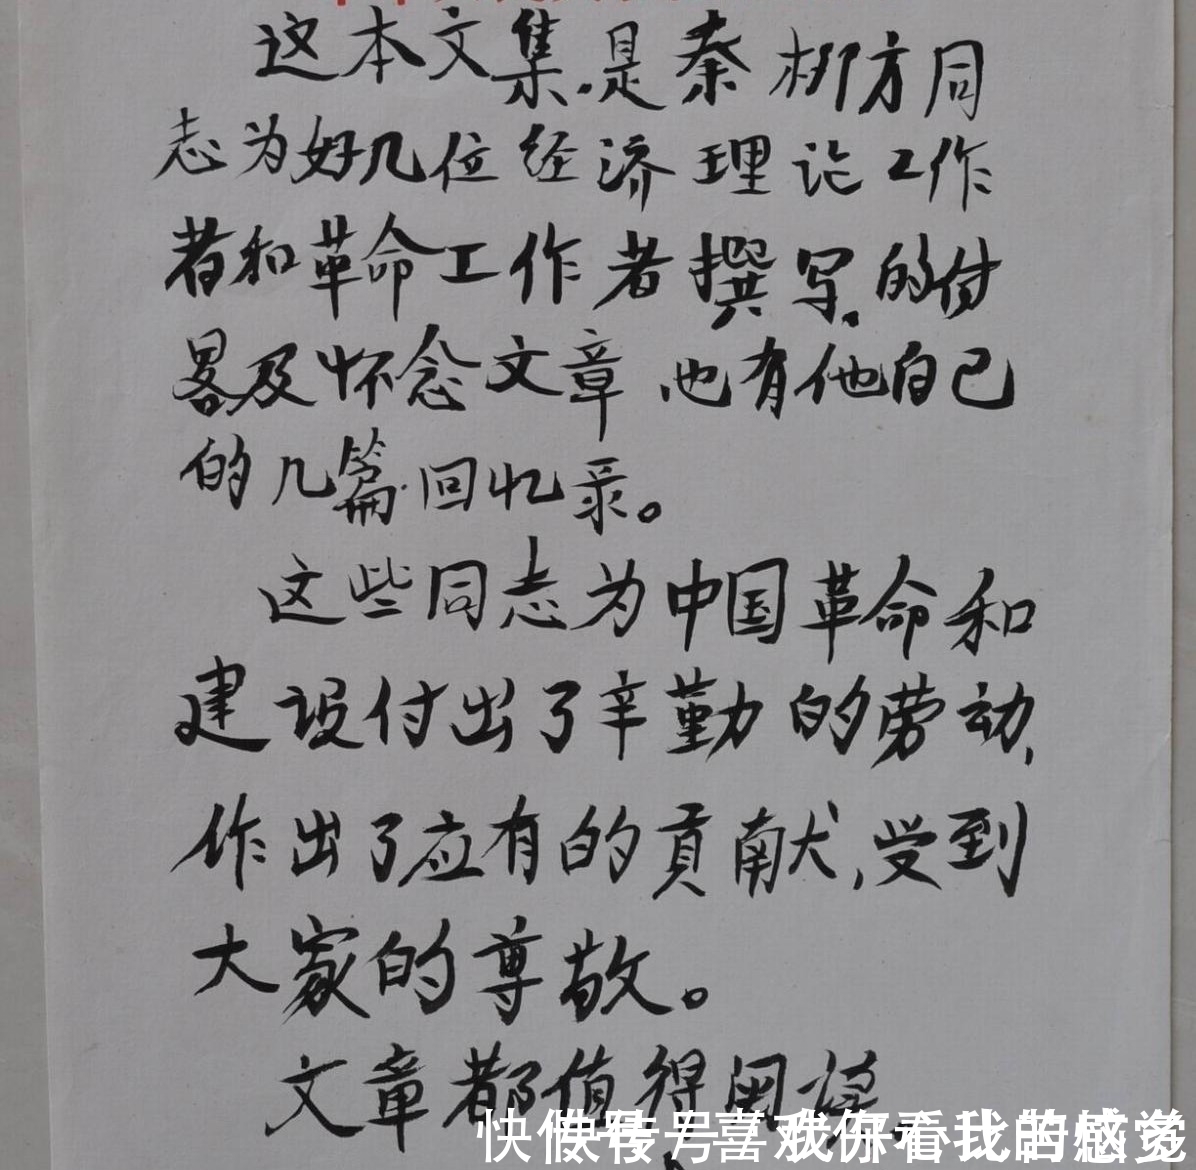 这本文集.是秦柳方同
志为好几位经济理论工作
者和革命工作者撰写.的付
畧及怀念文章 也有他自己
的几篇回忆录。
这些同志为中国革命和
建设付出了辛勤的劳动,
作出了应有的贡献,受到
大家的尊敬。
文章都值得阅读